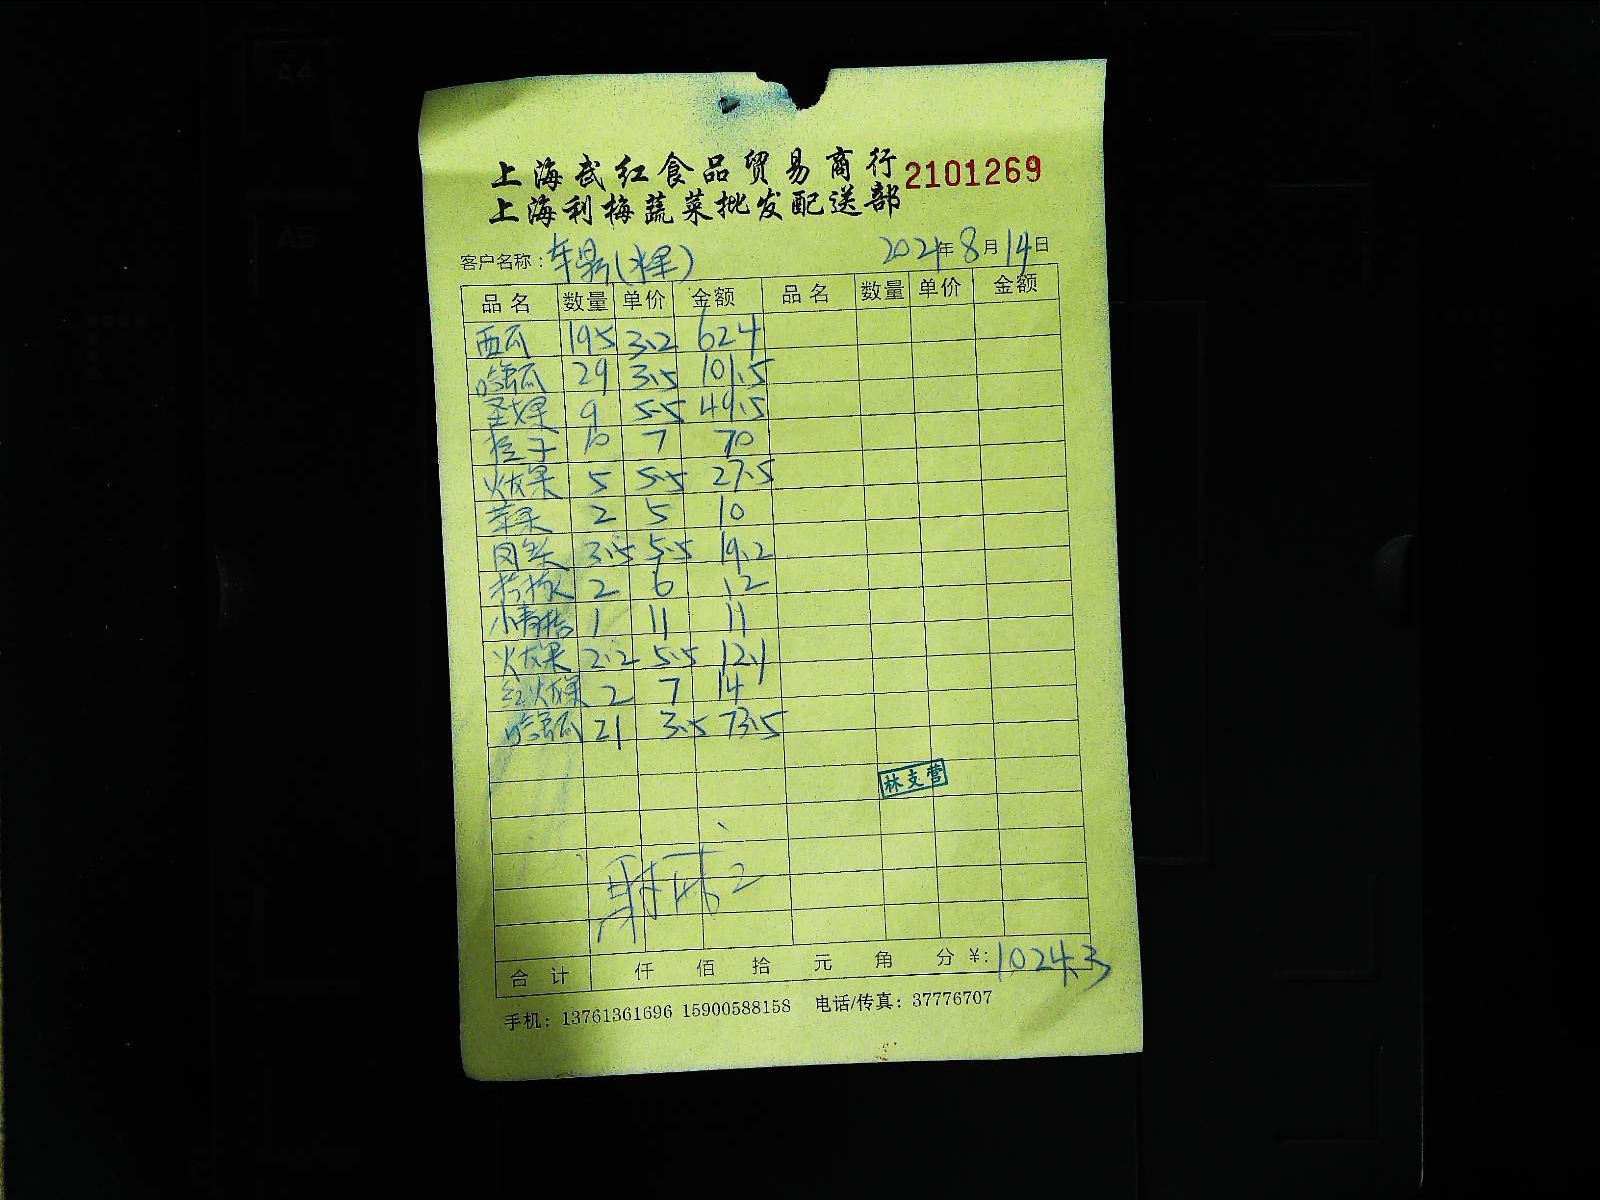 上海武红食品贸易商行 2101269
上海利梅蔬菜批发配送部
客户名称：车墩(水果) 2021年8月14日
品名 数量 单价 金额 品名 数量 单价 金额
西瓜 195 3.2 624
哈密瓜 29 3.5 101.5
圣女果 9 5.5 49.5
桔子 10 7 70
火龙果 5 5.5 27.5
苹果 2 5 10
3.5 5.5 19.2
2 6 12
小青桔 1 11 11
火龙果 2.2 5.5 12.1
红火龙果 2 7 14
哈密瓜 21 3.5 73.5
林支营
合计 仟 佰 拾 元 角 分 ¥: 1024.3
手机：13761361696 15900588158 电话/传真：37776707